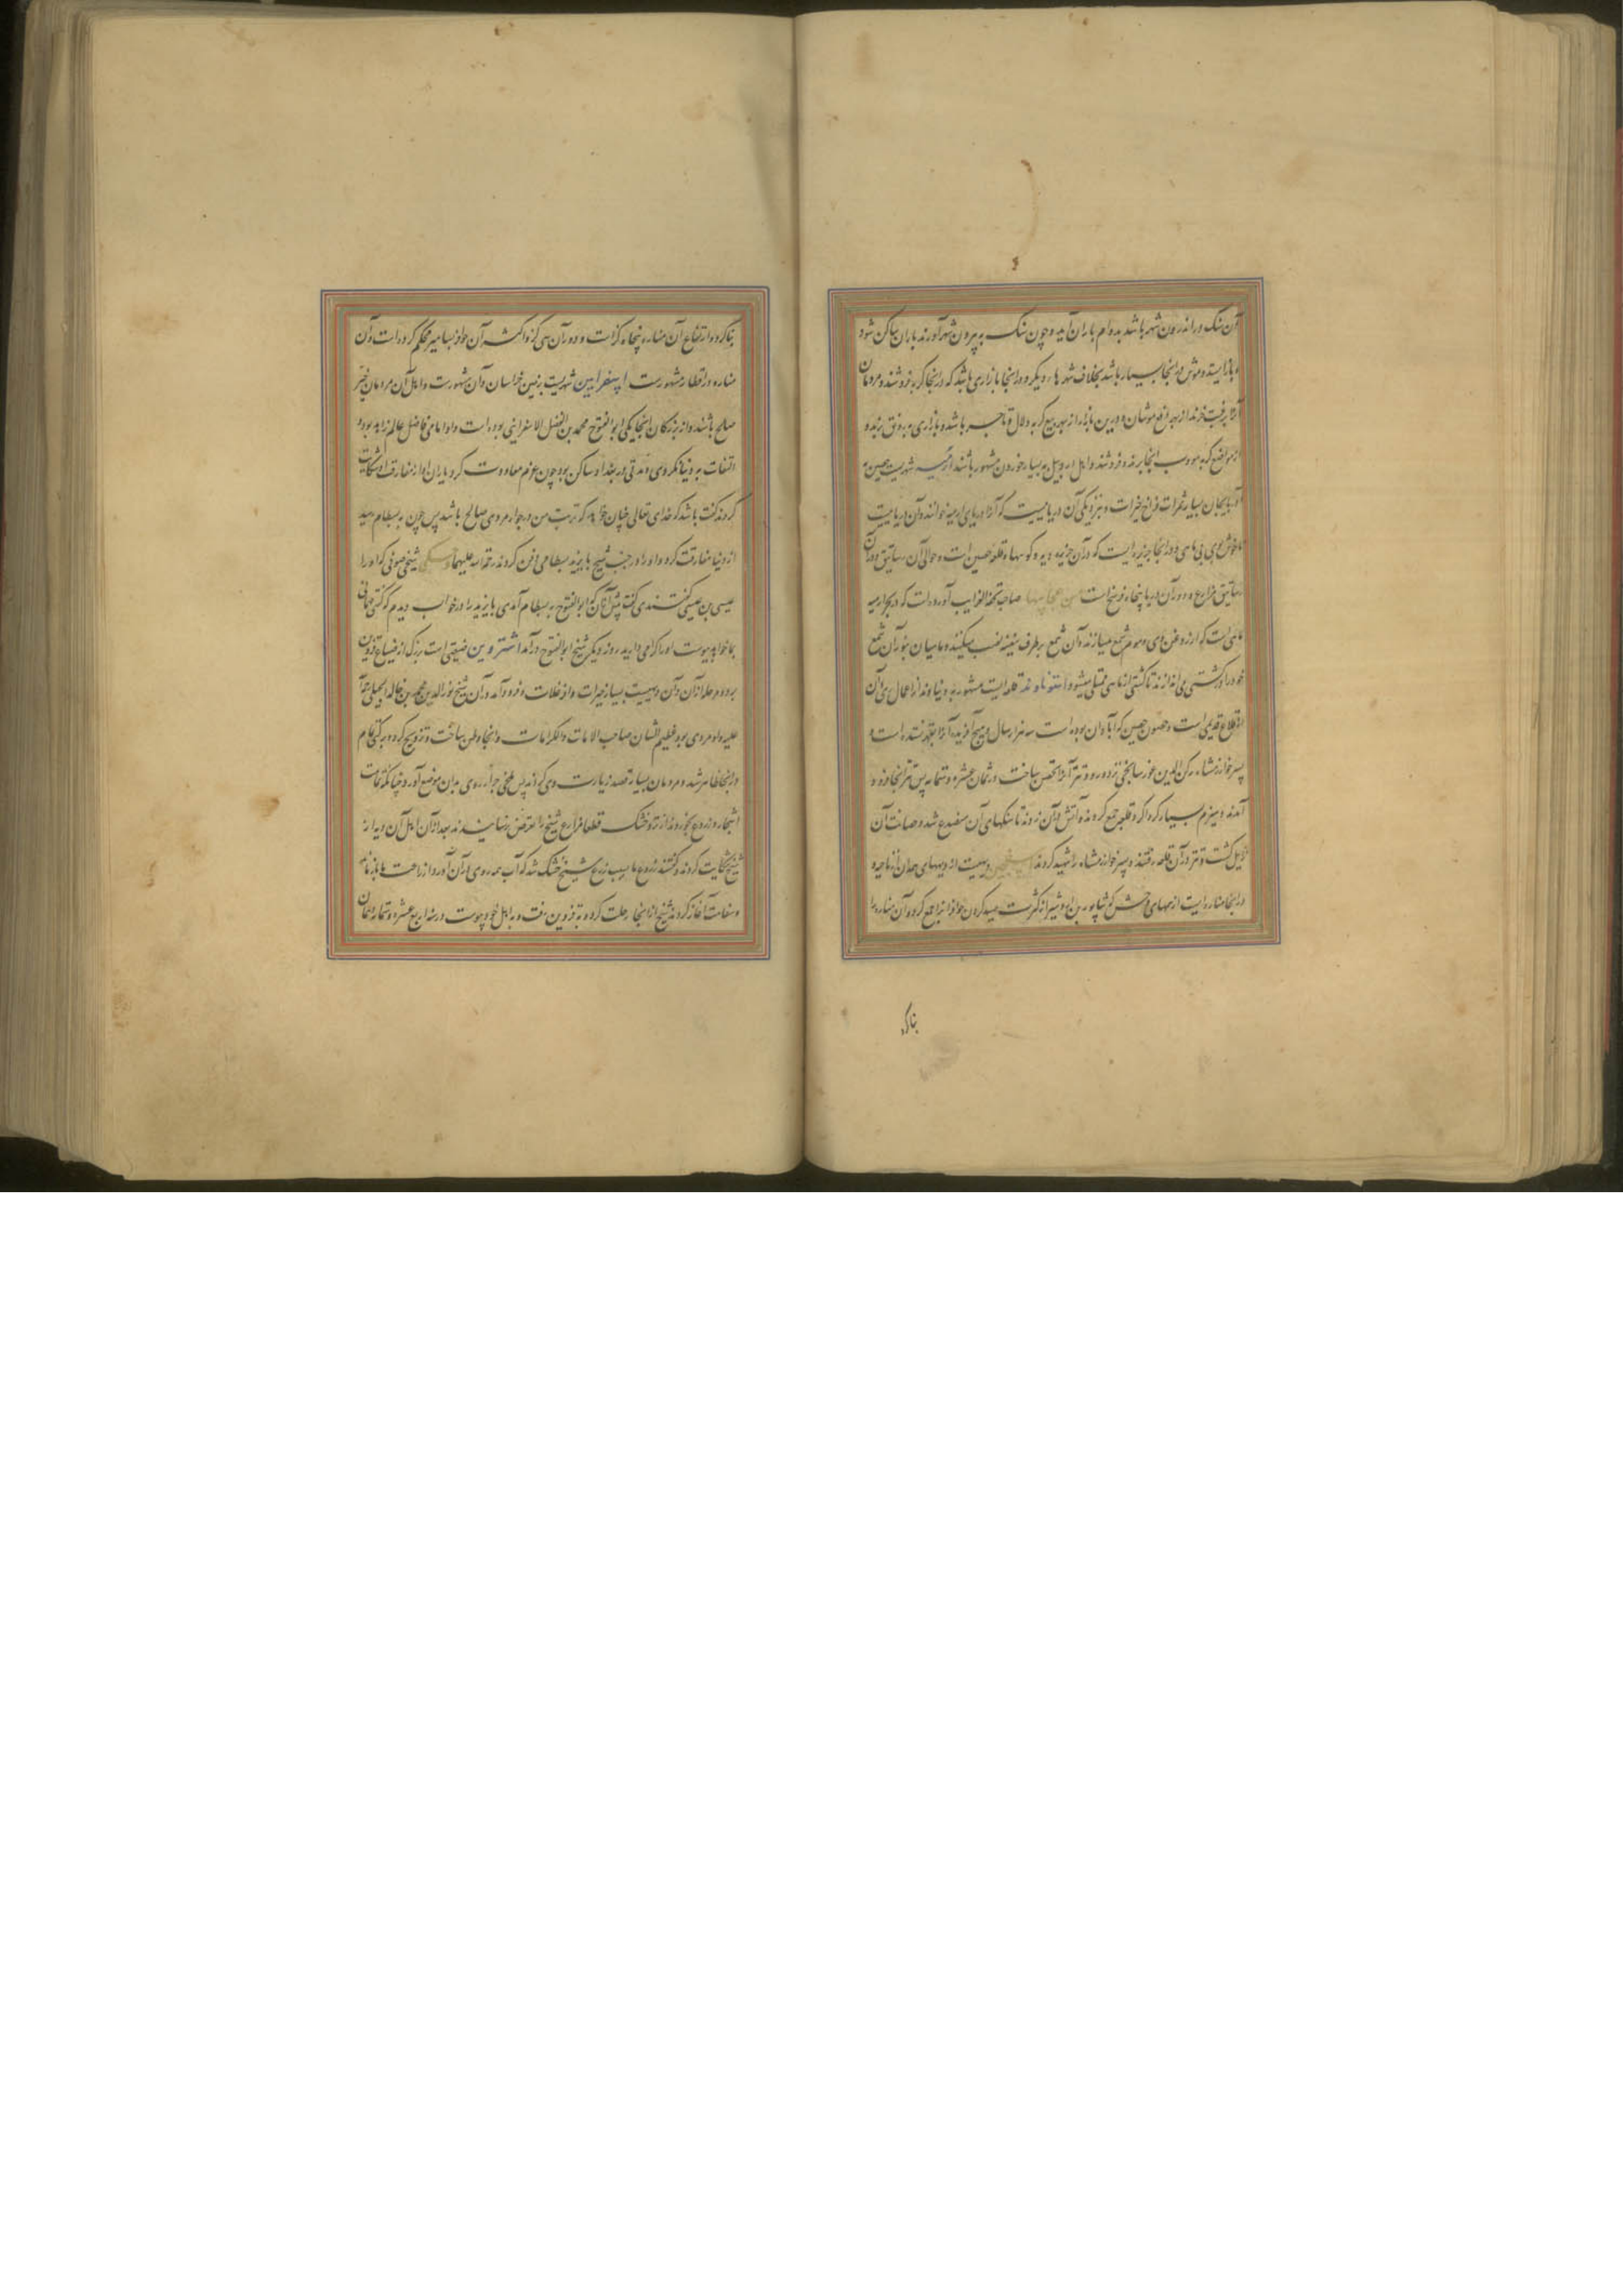 آن سنک در اندرون شهر باشد بدوام باران آید و چون سنک به بیرون شهر آورند باران ساکن شود
و باز ایستد و موش در اینجا بسیار باشد بخلاف شهرها دیکر و در اینجا بازاری باشد که در اینجا کربه فروشند و مردمان
آنرا برغبت خرند از بهر دفع موشان و درین بازار از بهر بیع کربه دلال و تاجر باشد و بازاری برونق بوده
از مواضع کربه اینجا برند و فروشند و اهل اردبیل به بسیار خوردن مشهور باشند ارمیه شهریست حصین به
آذربایجان بسیار ثمرات فراخ خیرات و بنزدیکی آن دریاییست که آنرا دریای ارمیه خوانند و آن دریاییست
ناخوش بوی بی ماهی و در اینجا جزیره ایست که در آن جزیره دیه و کوهها و قلعه حصین است و حوالی آن رساتیق و در آن
رساتیق مزارع و دور آن دریا پنجاه فرسخ است من عجایبها صاحب تحفة الغرایب آورده است که در بحر ارمیه
ماهی است که از روغن وی و موم شمع میسازند و آن شمع بر طرف سفینه نصب میکنند و ماهیان بنور آن شمع
خود را در کشتی می اندازند تا کشتی از ماهی ممتلی میشود استوناوند قلعه ایست مشهور به دنیاوند از اعمال ری و آن
از قلاع قدیمی است و حصون حصین که آبادان بوده است سه هزار سال و هیچ آفریده آنرا بقهر نستده است و
پسر خوارزمشاه رکن الدین غورسایجی نزد ورود تتر آنرا تحصن ساخت در ثمان عشره و ستمایه پس تتر آنجا فرود
آمدند و هیزم بسیار کرداکرد قلعه جمع کردند و آتش در آن زدند تا سنکهای آن منصدع شد و حصانت آن
زایل کشت و تتر در آن قلعه رفتند و پسر خوارزمشاه را شهید کردند دهیست از دیههای همدان از ناحیه
در اینجا مناره ایست از سمهای وحش که شاپور بن اردشیر از کثرت صید کردن حوافر آنرا جمع کرد و آن مناره را
بنا کرد
بنا کرد و ارتفاع آن مناره پنجاه کز است و دور آن سی کز و اکثر آن حوافر بمسامیر محکم کرده است و آن
مناره در اقطار مشهورست اسفراین شهریست بزمین خراسان و آن مشهورست و اهل آن مردمان خیر
صلح باشند و از بزرکان اینجا یکی ابوالفتوح محمد بن الفضل الاسفراینی بوده است و او امامی فاضل عالم زاهد بود و
التفات به دنیا نکردی و مدتی در بغداد ساکن بود چون عزم معاودت کرد یاران او از مفارقت او شکایت
کردند کفت باشد که خدای تعالی چنان خواهد که تربت من در جوار مردی صالح باشد پس چون به بسطام رسید
از دنیا مفارقت کرد و او را در جنب شیخ بایزید بسطامی دفن کردند رحمة الله علیهما شیخی صوفی که او را
عیسی بن عیسی کفتندی کفت پیش از آن که ابوالفتوح به بسطام آمدی بایزید را در خواب دیدم که کفتی مهمانی
بما خواهد پیوست او را کرامی دارید روز دیکر شیخ ابوالفتوح در آمد اشتروین ضیعتی است بزرک از ضیاع قزوین
بر دو مرحله از آن و آن دهیست بسیار خیرات وافر غلات و فرود آمد در آن شیخ نورالدین محمد بن خالد الجیلی رحمة الله
علیه و او مردی بود عظیم الشان صاحب الآیات والکرامات و اینجا وطن ساخت و تزویج کرد و برکت مقام
در اینجا ظاهر شد و مردمان بسیار قصد زیارت وی کردند پس ملخی جرار روی بدان موضع آورد چنانکه تمامت
اشجار و زروع بخورد از تر و خشک قطعا مزارع شیخ را تعرض نرسانیدند بعد از آن اهل آن دیه از
شیخ شکایت کردند و کفتند زروع ما بسبب زرع شیخ خشک شد که آب همه روی بدان آورد و از زراعت ما باز ماند
و سفاهت آغاز کردند شیخ از اینجا رحلت کرده به قزوین رفت و به اهل خود پیوست در سنه اربع عشره و ستمایه و همان